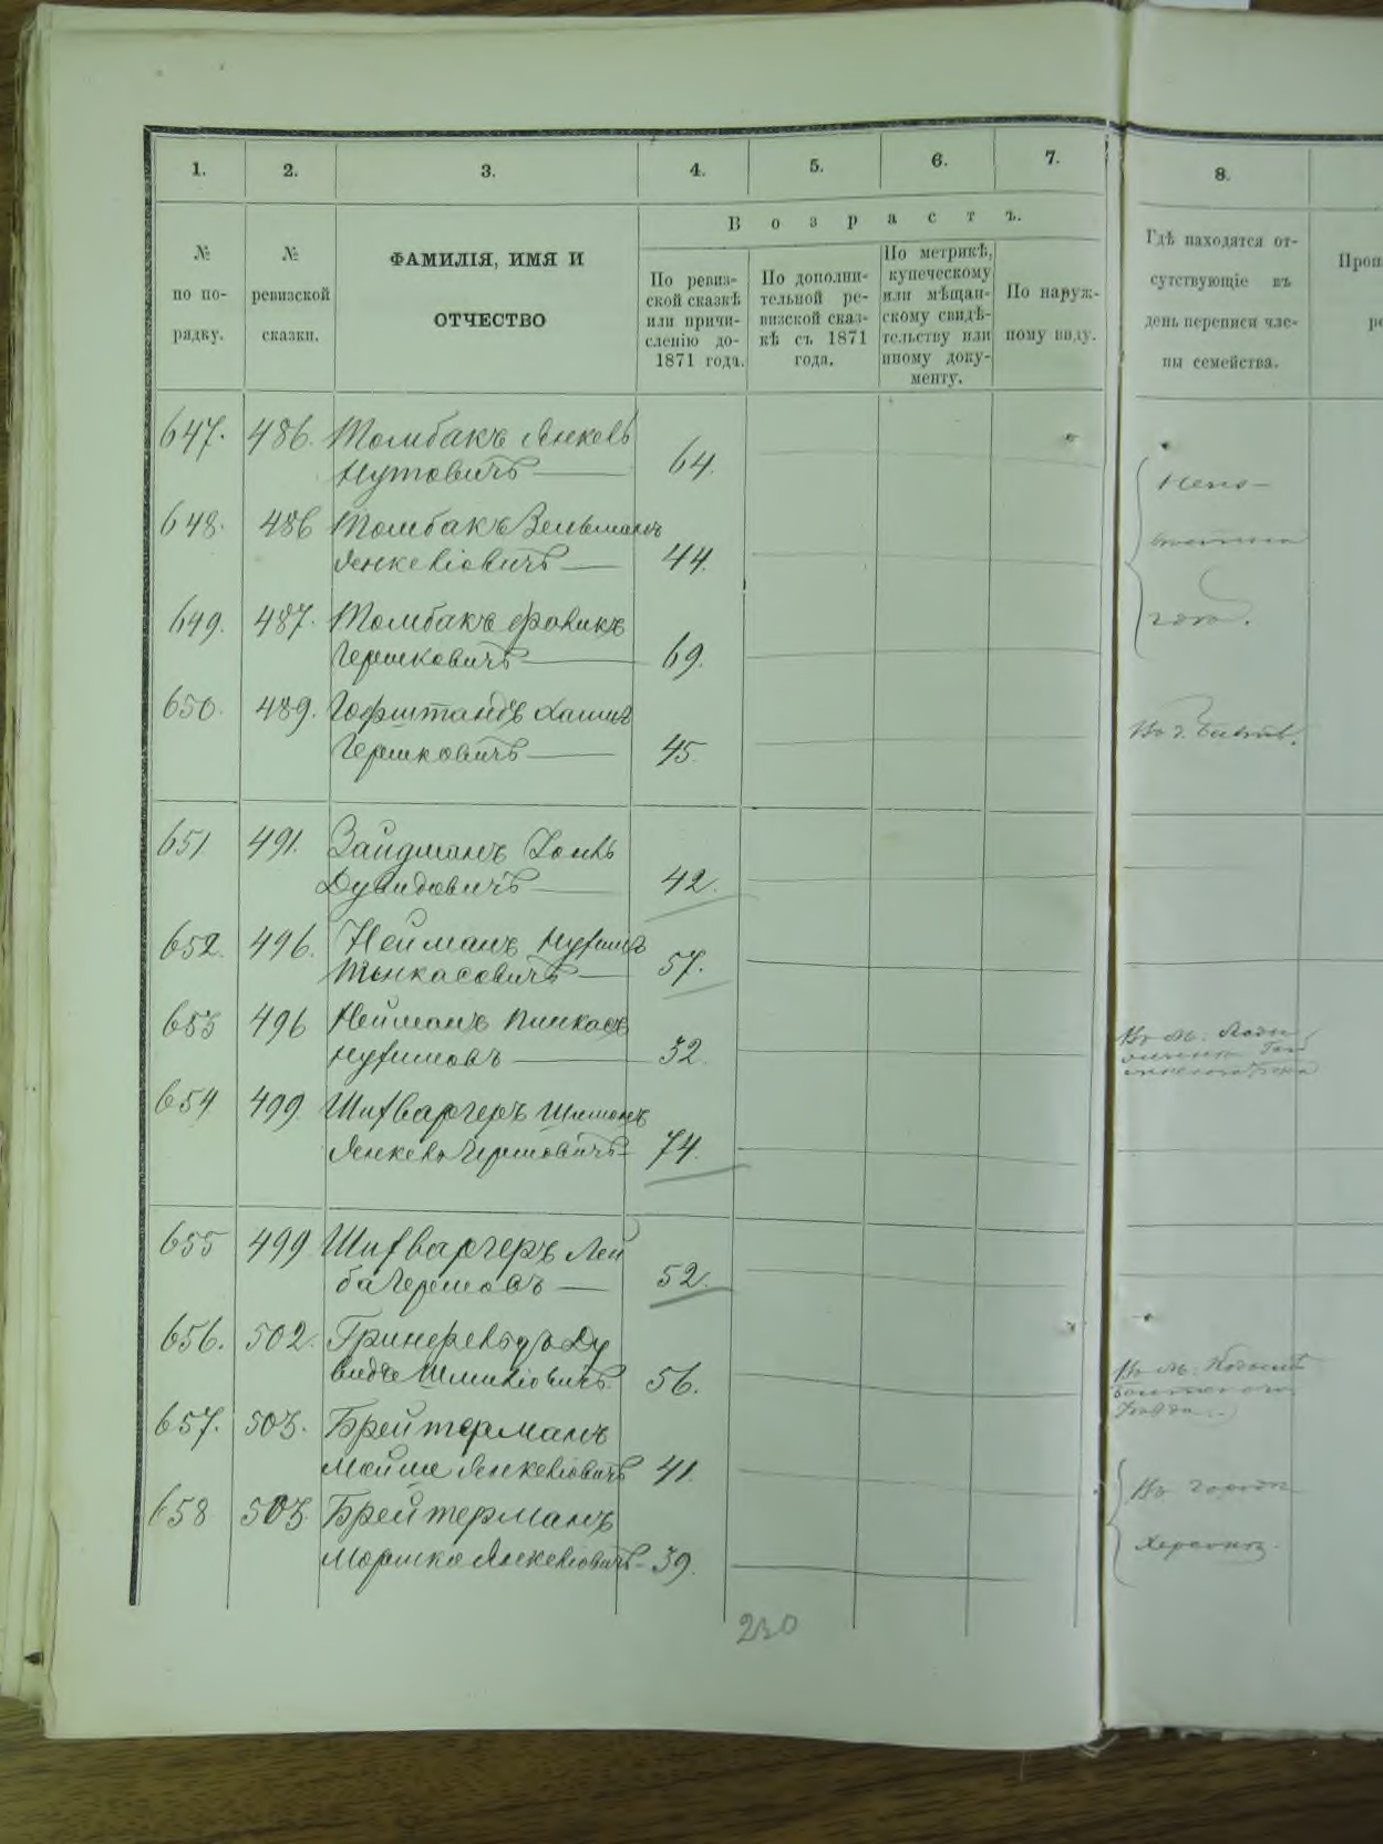 1. 2. 3. 4. 5. 6. 7. 8.
№ по по- рядку.
№ ревизской сказки.
ФАМИЛІЯ, ИМЯ И
ОТЧЕСТВО
В о з р а с т ъ.
По ревиз-
ской сказкѣ
или причи-
сленію до-
1871 года.
По дополни-
тельной ре-
визской сказ-
кѣ съ 1871
года.
По метрикѣ,
купеческому
или мѣщан-
скому свидѣ-
тельству или
иному доку-
менту.
По наруж-
ному виду.
Гдѣ находятся от-
сутствующіе въ
день переписи чле-
ны семейства.
647. 486. Томбакъ Янкель
Нутовичъ 64.
648. 486 Томбакъ Зельманъ
Янкеліовичъ 44.
649. 487. Томбакъ Фроликъ
Гершковичъ 69.
650. 489. Гофштандъ Хаимъ
Гершковичъ 45.
651 491. Зайдманъ
Дувидовичъ 42.
652. 496. Нейманъ Нухимъ
Пинкасовичъ 57.
653 496 Нейманъ Пинкасъ
Нухимовъ 32.
654 499. Шихваргеръ Шимонъ
Янкель Гершовичъ 74.
655 499 Шихваргеръ Лей
ба Гершовъ 52.
656. 502. Гринфельдъ Ду
видъ Шмиліовичъ 56.
657. 503. Брейтерманъ
Мойше Янкеліовичъ 41.
658 503. Брейтерманъ
Моршко Янкеліовичъ 39.
Въ м.
Въ м.
Въ городѣ
Херсонѣ.
230